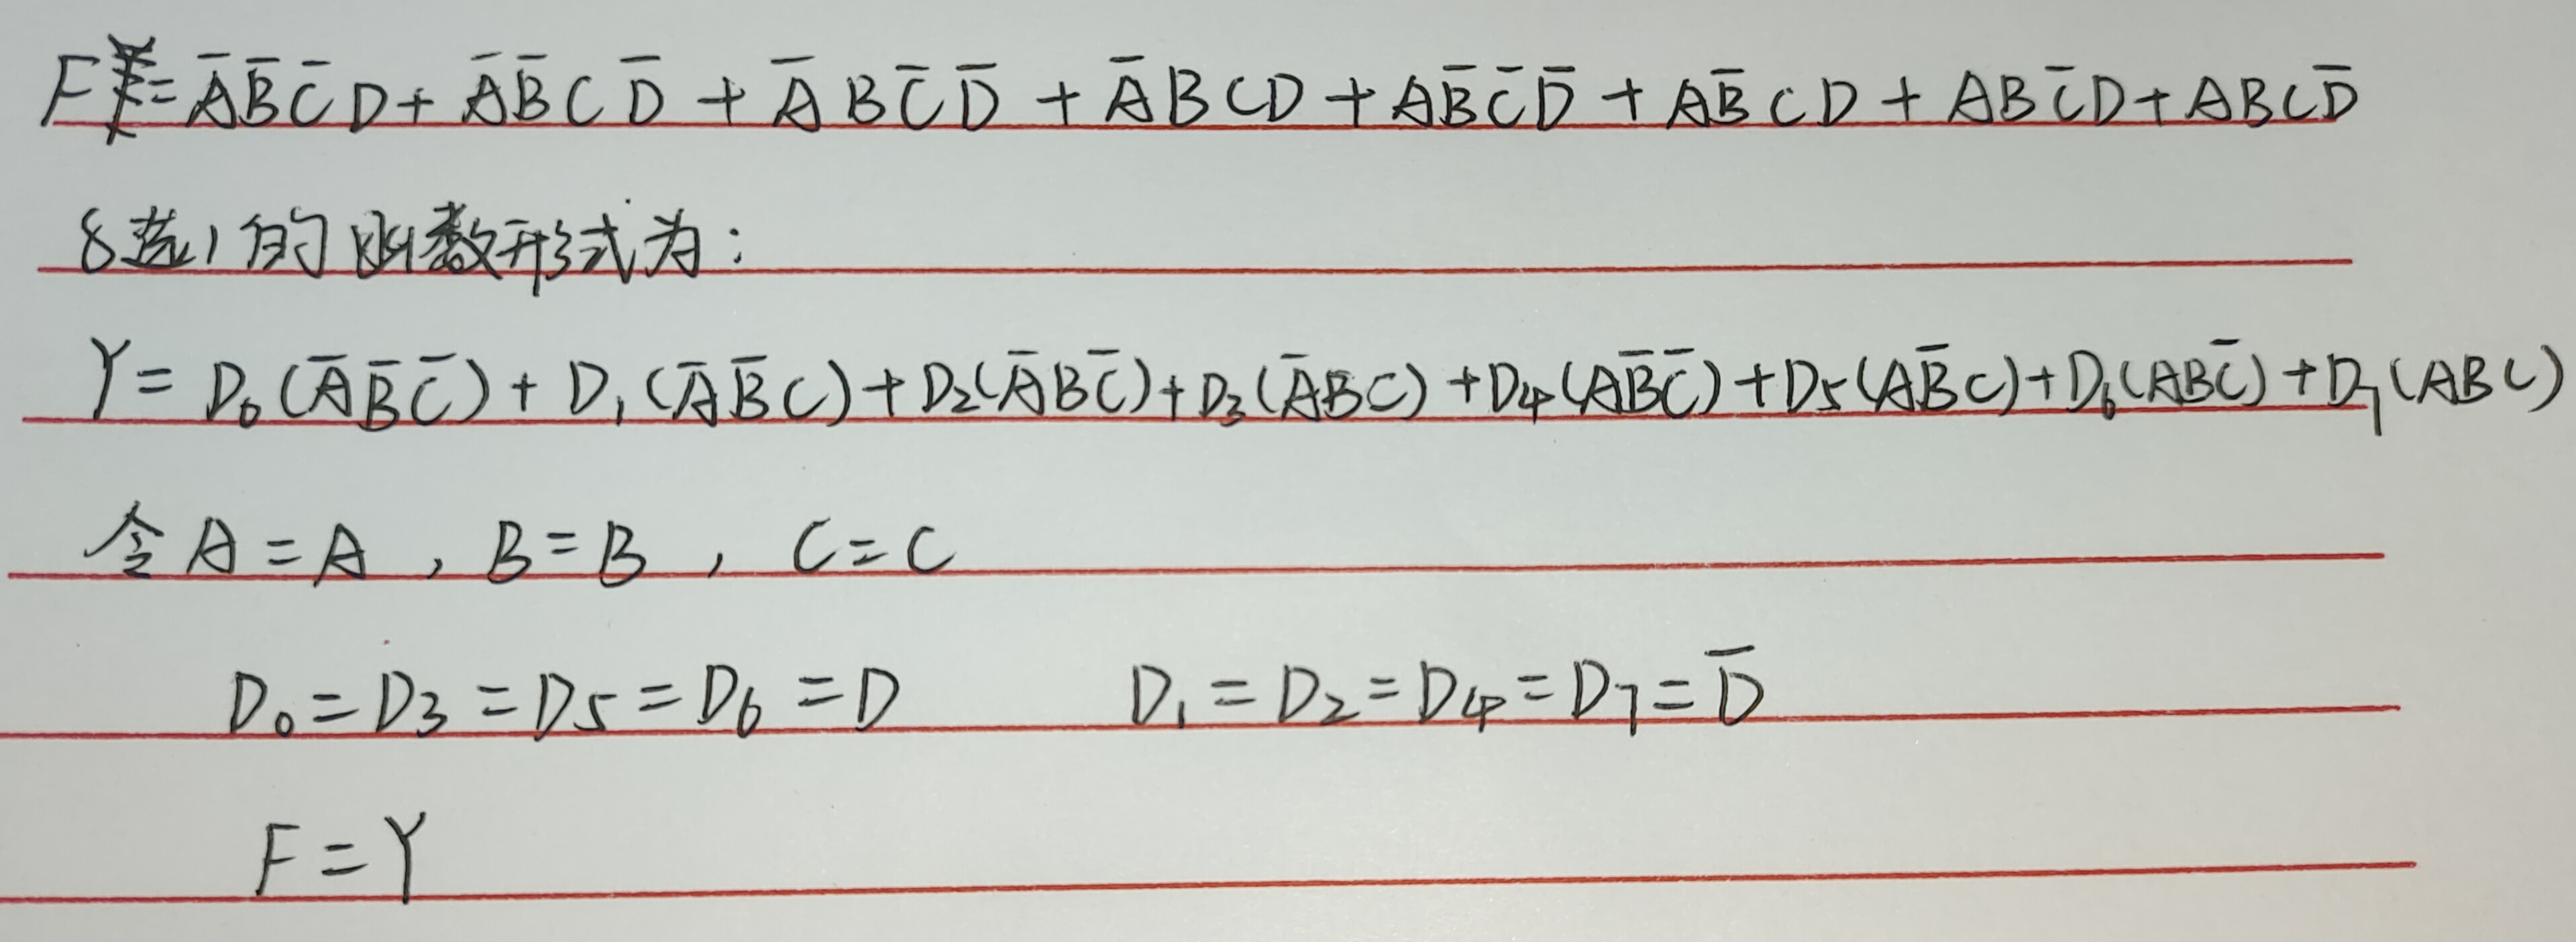 F = A̅B̅C̅D + A̅B̅CD̅ + A̅BC̅D̅ + A̅BCD + AB̅C̅D̅ + AB̅CD + ABC̅D + ABCD̅
8选1的函数形式为:
Y = D₀(A̅B̅C̅) + D₁(A̅B̅C) + D₂(A̅BC̅) + D₃(A̅BC) + D₄(AB̅C̅) + D₅(AB̅C) + D₆(ABC̅) + D₇(ABC)
令 A = A , B = B , C = C
D₀ = D₃ = D₅ = D₆ = D D₁ = D₂ = D₄ = D₇ = D̅
F = Y